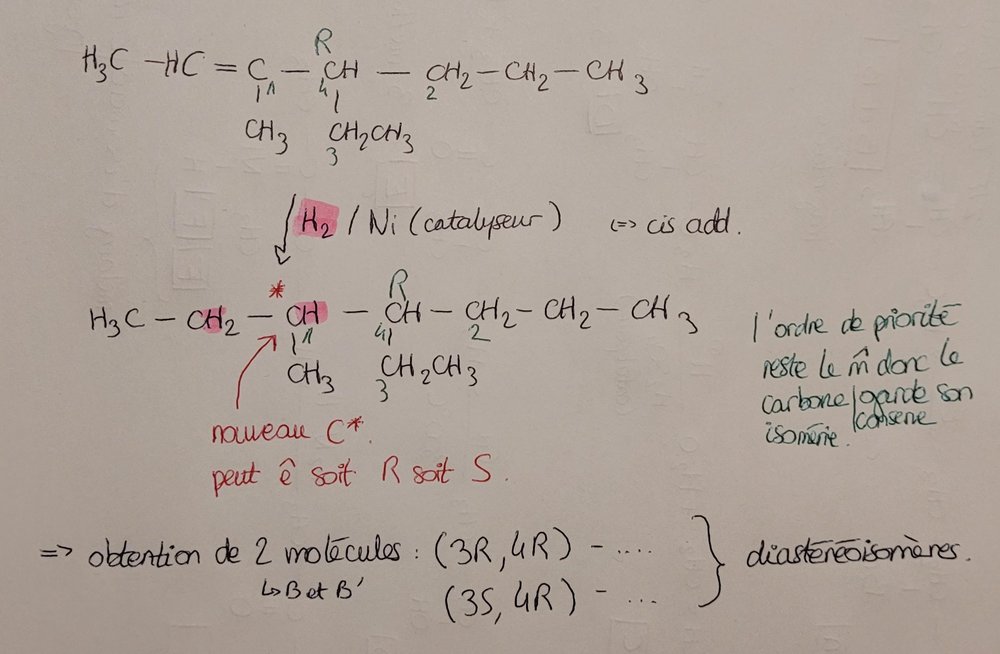 R
H₃C — HC = C — CH — CH₂ — CH₂ — CH₃
1 4 2
CH₃ CH₂CH₃
3
H₂ / Ni (catalyseur) <=> cis add.
* R
H₃C — CH₂ — CH — CH — CH₂ — CH₂ — CH₃
1 4 2
CH₃ CH₂CH₃
3
l'ordre de priorité
reste le m̂ donc le
carbone garde son
conserve
isomérie.
nouveau C*.
peut ê soit R soit S.
=> obtention de 2 molécules : (3R, 4R) - .... } diastéréoisomères.
↳ B et B'
(3S, 4R) - ...